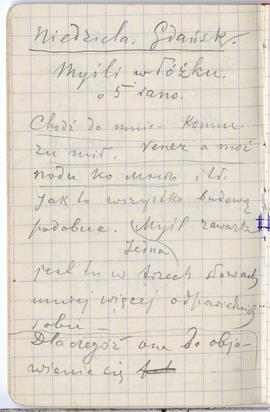 Niedziela. Gdańsk.
Myśli w łóżku.
o 5 rano.
Chodź do mnie – Komm
zu mir. Venez a moi
поди ко мне, itd.
jak to wszystko budową
podobne. (Myśl zawarta
jedna)
jest tu w trzech słowach
mniej więcej odpowiednich
sobie –
Dlaczegóż ona do obja-
wienia się